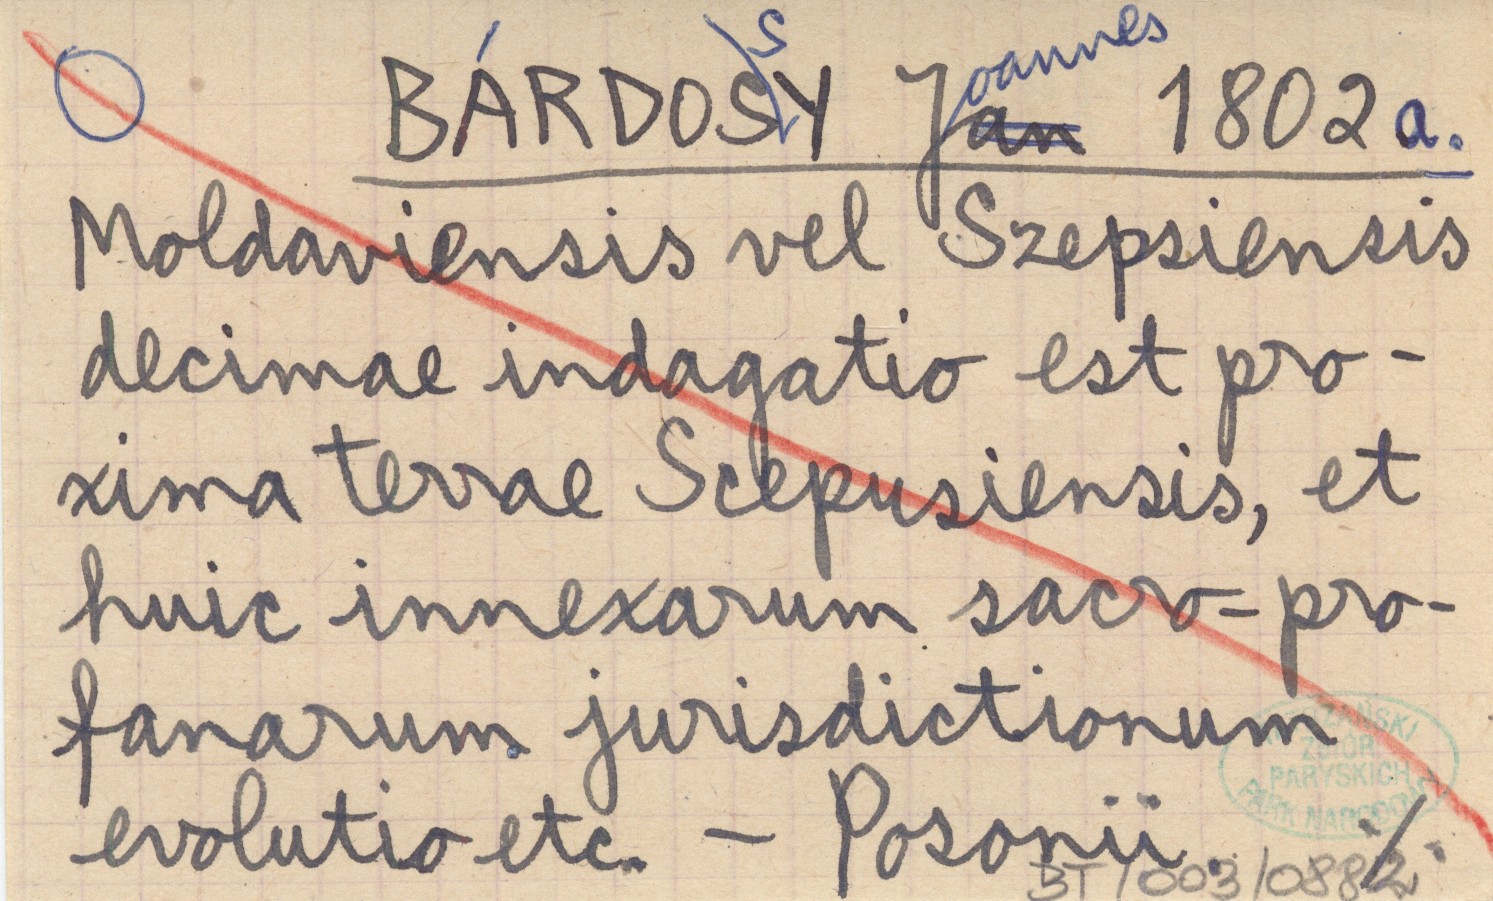 BÁRDOSSY Joannes 1802 a.
Moldaviensis vel Szepsiensis
decimae indagatio est pro-
xima terrae Scepusiensis, et
huic innexarum sacro=pro-
fanarum jurisdictionum
evolutio etc. — Posonii. ./.
ZBIÓR
PARYSKICH
PARK NARODOWY
BT/003/0882